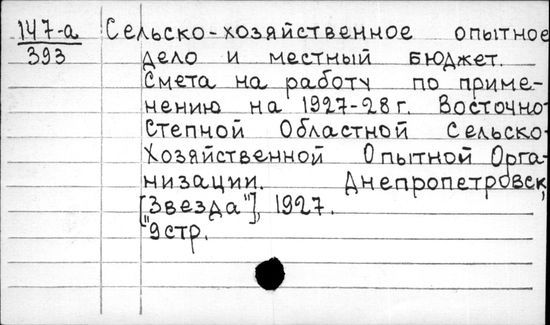 147-а Сельско-хозяйственное опытное
393 дело и местный бюджет.
Смета на работу по приме-
нению на 1927-28 г. Восточно-
Степной Областной Сельско-
Хозяйственной Опытной Орга-
низации. Днепропетровск,
["Звезда"], 1927.
9 стр.